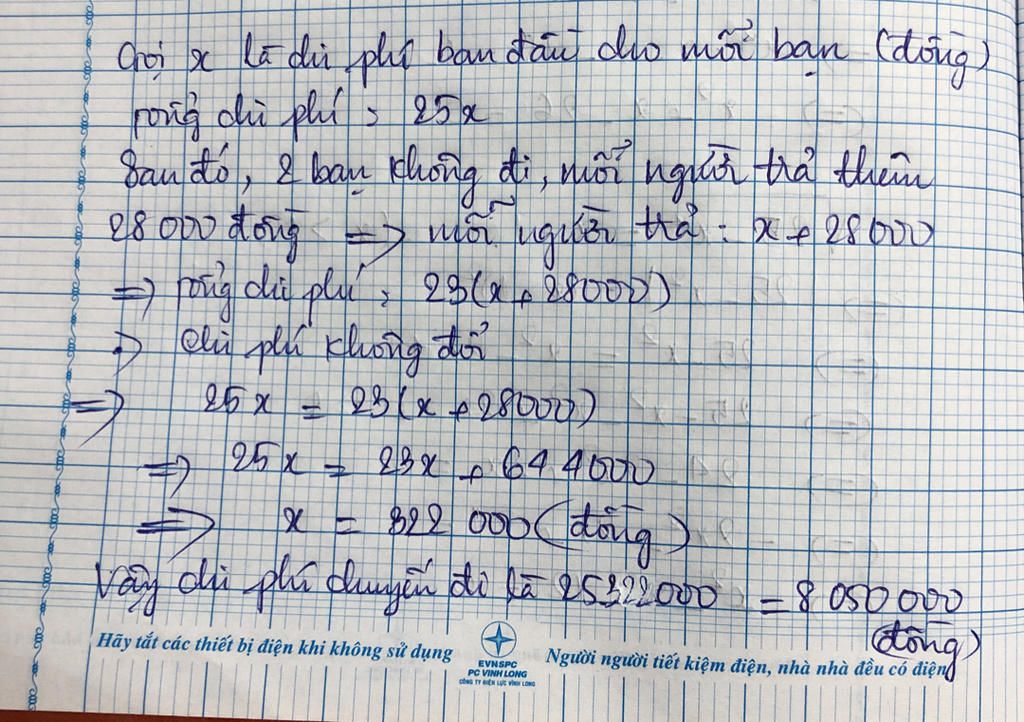 Gọi x là chi phí ban đầu cho mỗi bạn (đồng)
Tổng chi phí : 25x
Sau đó, 2 bạn không đi, mỗi người trả thêm
28 000 đồng => mỗi người trả : x + 28 000
=> Tổng chi phí : 23(x + 28000)
=> Chi phí không đổi
=> 25x = 23(x + 28000)
=> 25x = 23x + 644000
=> x = 322 000 (đồng)
Vậy chi phí chuyến đi là 25322000 = 8 050 000
(đồng)
Hãy tắt các thiết bị điện khi không sử dụng
EVNSPC
PC VINH LONG
CÔNG TY ĐIỆN LỰC VĨNH LONG
Người người tiết kiệm điện, nhà nhà đều có điện